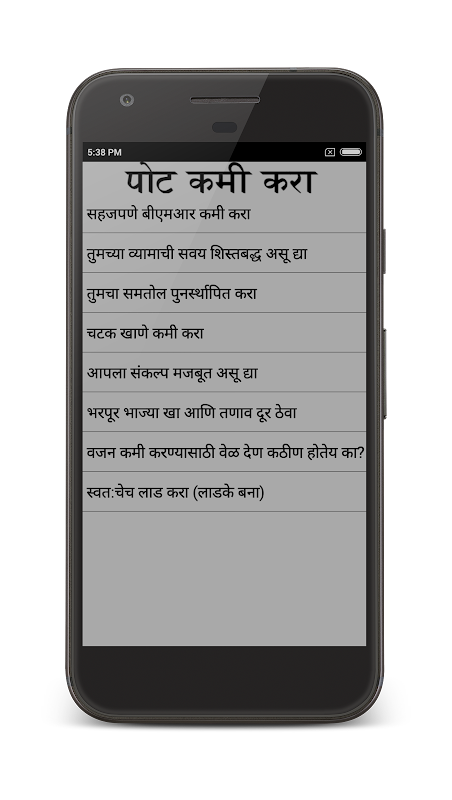 5:38 PM
पोट कमी करा
सहजपणे बीएमआर कमी करा
तुमच्या व्यामाची सवय शिस्तबद्ध असू द्या
तुमचा समतोल पुनर्स्थापित करा
चटक खाणे कमी करा
आपला संकल्प मजबूत असू द्या
भरपूर भाज्या खा आणि तणाव दूर ठेवा
वजन कमी करण्यासाठी वेळ देण कठीण होतेय का?
स्वत:चेच लाड करा (लाडके बना)